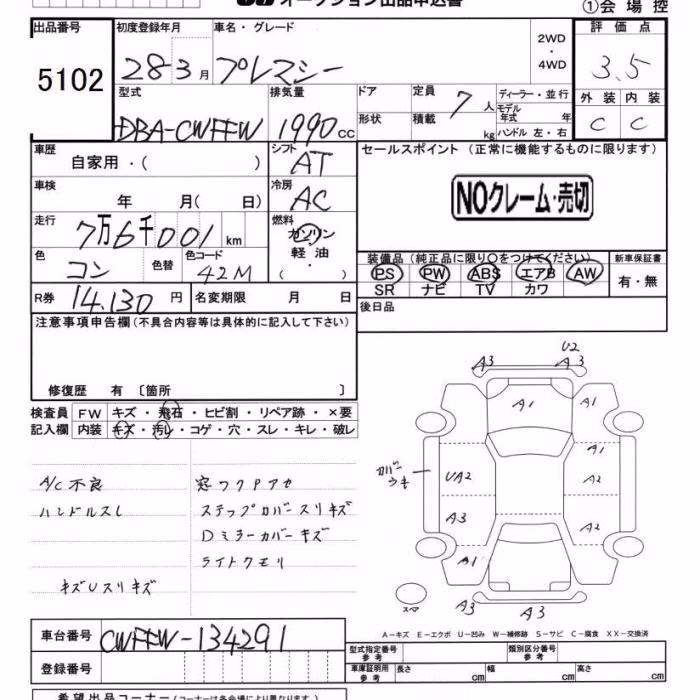 オークション出品申込書
①会場控
出品番号 初度登録年月 車名・グレード 2WD・4WD 評価点
5102 28-3月 プレマシー 3.5
型式 排気量 ドア 定員 7人 ディーラー・並行 外装 内装
DBA-CWFFW 1990cc 形状 積載 kg モデル年式 年 ハンドル 左・右 C C
車歴 自家用・( ) シフト AT セールスポイント(正常に機能するものに限ります)
車検 年 月( 日) 冷房 AC NOクレーム・売切
走行 7万6千001km 燃料 ガソリン 軽油・( ・ )
色 コン 色替 色コード 42M 装備品(純正品に限り○をつけてください) 新車保証書
PS PW ABS エアB AW 有・無
SR ナビ TV カワ
R券 14,130円 名変期限 月 日 後日品
注意事項申告欄(不具合内容等は具体的に記入して下さい)
修復歴 有〔箇所 〕
検査員 FW キズ・飛石・ヒビ割・リペア跡・×要
記入欄 内装 キズ・汚レ・コゲ・穴・スレ・キレ・破レ
A/C不良 窓フクPアセ
ハンドルスレ ステップカバースリキズ
Dミラーカバーキズ
ライトクモリ
キズUスリキズ
U2
A3 A3
A1 A1
カバーウキ UA2 A1 A2
A3 A2
A1
スペア A3 A3
A―キズ E―エクボ U―凹み W―補修跡 S―サビ C―腐食 XX―交換済
車台番号 CWFFW-134291
登録番号
型式指定番号 参考 類別区分番号 参考
車庫証明用 参考 長さ cm 幅 cm 高さ cm
希望出品コーナー(コーナーは各会場により異なります)